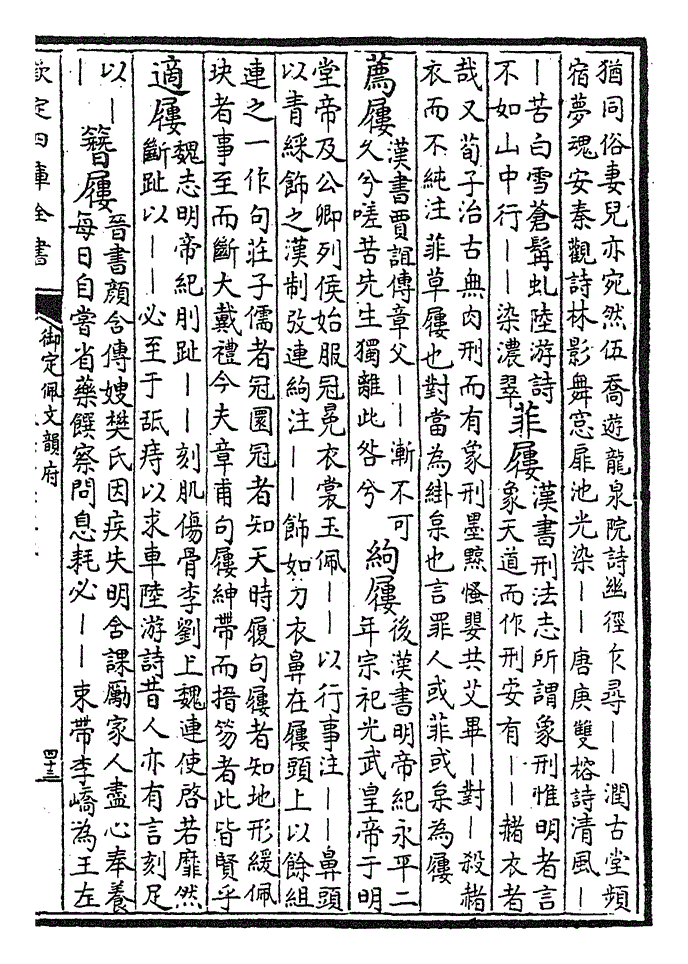 猶同俗妻兒亦宛然伍喬遊龍泉院詩幽徑乍尋丨丨潤古堂頻
宿夢魂安秦觀詩林影舞窓扉池光染丨丨唐庚雙榕詩清風丨
丨苦白雪蒼髯虬陸游詩
不如山中行丨丨染濃翠
菲屨
漢書刑法志所謂象刑惟明者言
象天道而作刑安有丨丨赭衣者
哉又荀子治古無肉刑而有象刑墨黥慅嬰共艾畢丨對丨殺赭
衣而不純注菲草屨也對當為絓枲也言罪人或菲或枲為屨
薦屨
漢書賈誼傳章父丨丨漸不可
久兮嗟苦先生獨離此咎兮
絇屨
後漢書明帝紀永平二
年宗祀光武皇帝于明
堂帝及公卿列侯始服冠冕衣裳玉佩丨丨以行事注丨丨鼻頭
以青綵飾之漢制攷連絇注丨丨飾如刀衣鼻在屨頭上以餘組
連之一作句莊子儒者冠圜冠者知天時履句屨者知地形緩佩
玦者事至而斷大戴禮今夫章甫句屨紳帶而搢笏者此皆賢乎
適屨
魏志明帝紀刖趾丨丨刻肌傷骨李劉上魏連使啓若靡然
斷趾以丨丨必至于舐痔以求車陸游詩昔人亦有言刻足
以丨
丨
簪屨
晉書顏含傳嫂樊氏因疾失明含課勵家人盡心奉養
每日自嘗省藥饌察問息耗必丨丨束帶李嶠為王左
欽定四庫全書
御定佩文韻府
四十三